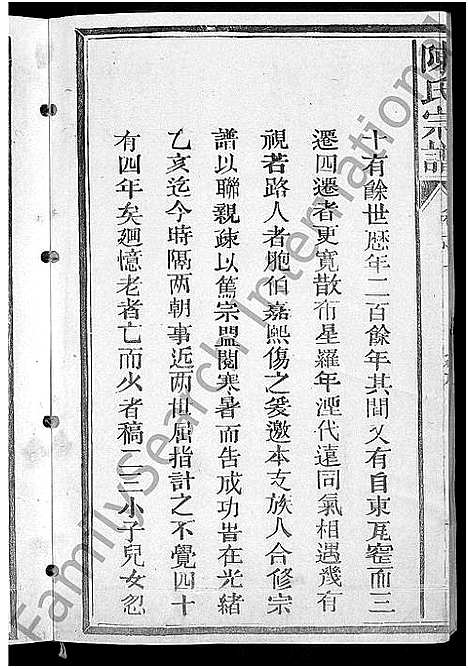 陳氏宗譜
十有餘世歷年二百餘年其間又有自東瓦窑而三
遷四遷者更寬散布星羅年湮代遠同氣相遇幾有
視若路人者胞伯嘉熙傷之爰邀本支族人合修宗
譜以聯親疎以篤宗盟閱寒暑而告成功昔在光緒
乙亥迄今時隔两朝事近两世屈指計之不覺四十
有四年矣廻憶老者亡而少者稿二三小子兒女忽
FamilySearch International